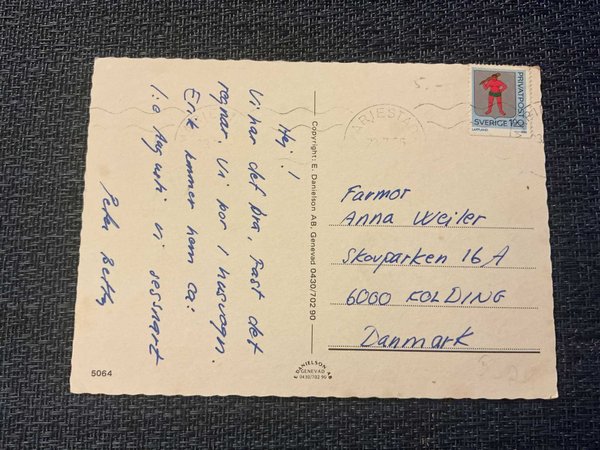 Hej!
Vi har det bra, Fast det
regnar. Vi bor i husvagn.
Erik kommer hem ca:
1:a Augusti vi ses snart
Peter Betty
5064
Copyright: E. Danielson AB, Genevad 0430/702 90
DANIELSON AB
GENEVAD
0430/702 90
5.-
PRIVATPOST
SVERIGE 1.90
LAPPLAND
Farmor
Anna Weiler
Skovparken 16 A
6000 KOLDING
Danmark